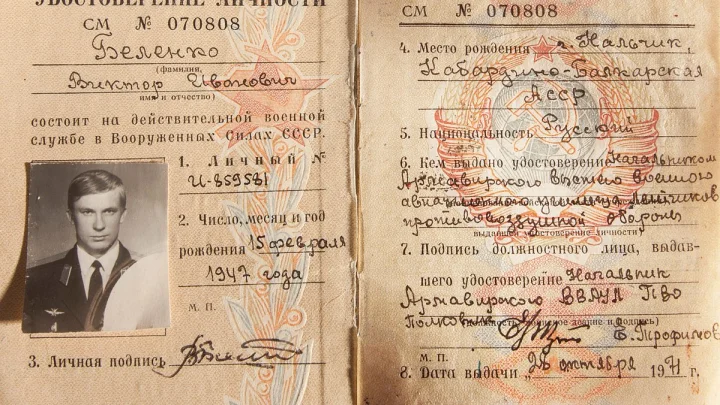 УДОСТОВЕРЕНИЕ ЛИЧНОСТИ
СМ № 070808
Беленко
(фамилия,
Виктор Иванович
имя и отчество)
состоит на действительной военной
службе в Вооруженных Силах СССР.
1. Личный №
И-859581
2. Число, месяц и год
рождения 15 февраля
1947 года
М. П.
3. Личная подпись
СМ № 070808
4. Место рождения г. Нальчик,
Кабардино-Балкарская
АССР
5. Национальность Русский
6. Кем выдано удостоверение Начальником
Армавирского высшего военного
авиационного училища летчиков
противовоздушной обороны
выдавшей удостоверение личности)
7. Подпись должностного лица, выдав-
шего удостоверение Начальник
Армавирского ВВАУЛ ПВО
звание и подпись)
Полковник Е. Трофимов
М. П.
8. Дата выдачи „28 октября 1971 г.